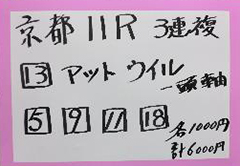 京都11R 3連複
13 アットウイル
一頭軸
5 9 11 18
各1000円
計6000円